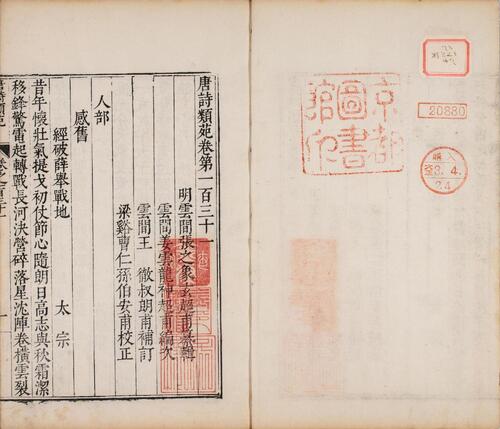 唐詩類苑卷第一百三十一
明雲間張之象玄超甫纂輯
雲間姜雲龍神超甫編次
雲間王　徹叔朗甫補訂
梁谿曹仁孫伯安甫校正
人部
感舊
經破薛舉戰地
太宗
昔年懷壯氣提戈初仗節心隨朗日高志與秋霜潔
移鋒驚電起轉戰長河決營碎落星沈陣卷橫雲裂
唐詩類苑
京都
圖書
館印
20880
購入
3.4.
24